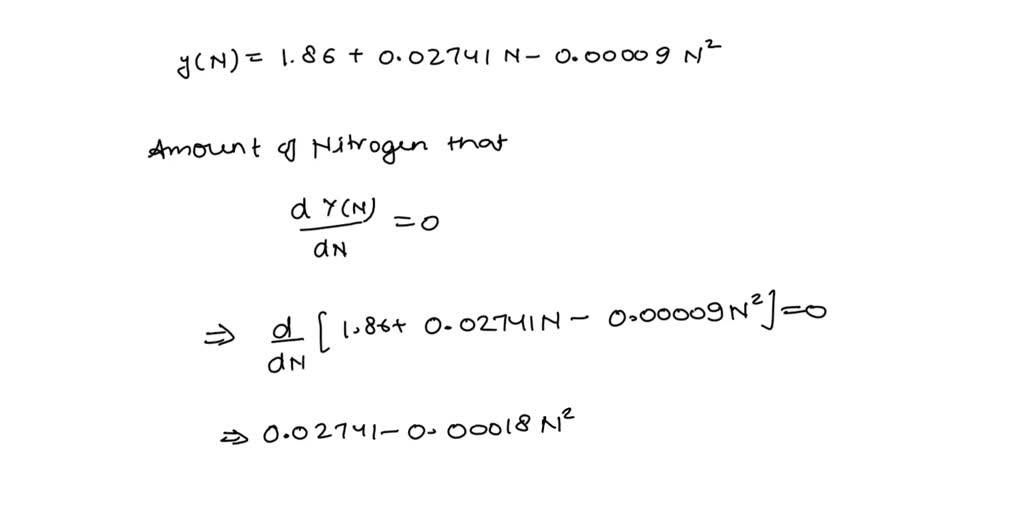 y(N) = 1.86 + 0.02741 N - 0.00009 N²
Amount of Nitrogen that
d Y(N)/dN = 0
⇒ d/dN [1.86 + 0.02741N - 0.00009N²] = 0
⇒ 0.02741 - 0.00018 N²